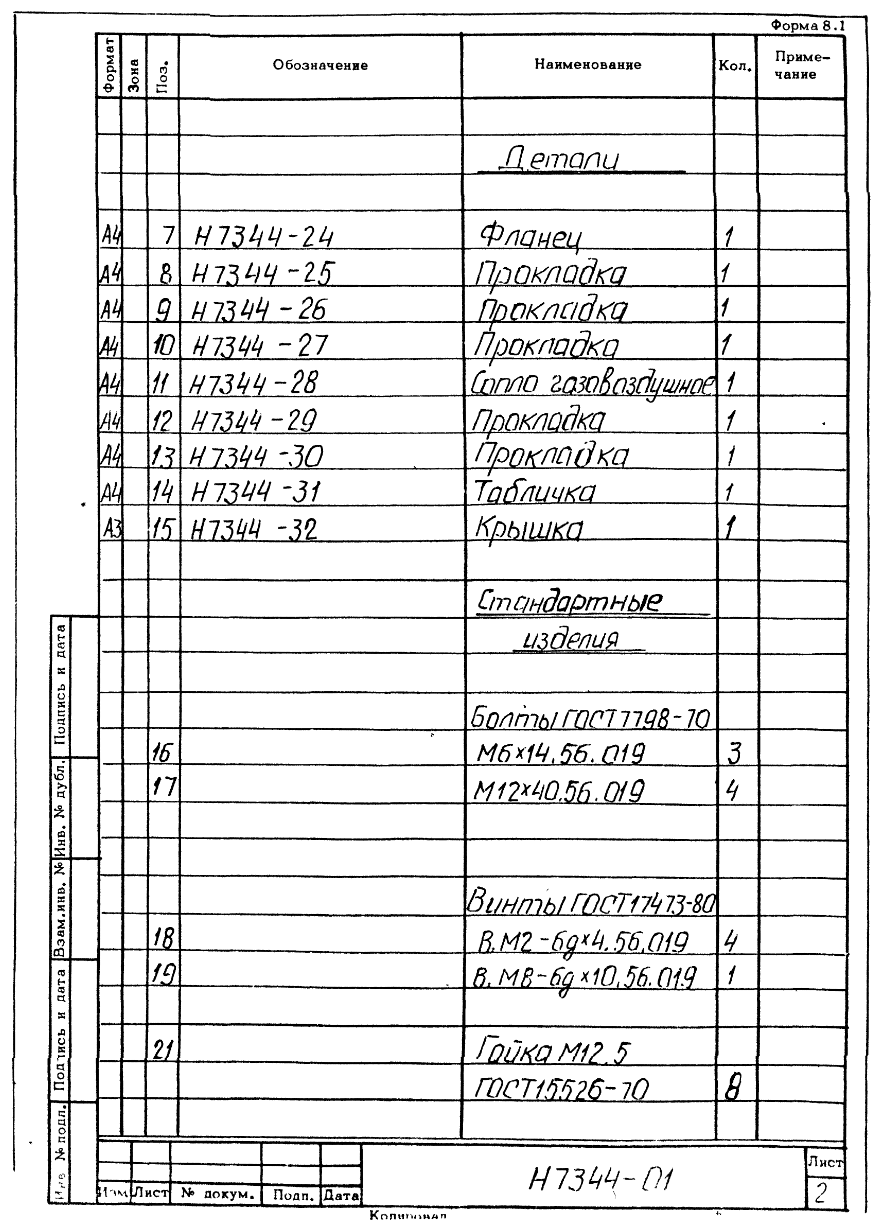 Форма 8.1
Формат Зона Поз. Обозначение Наименование Кол. Приме-
чание
Детали
А4 7 Н7344-24 Фланец 1
А4 8 Н7344-25 Прокладка 1
А4 9 Н7344-26 Прокладка 1
А4 10 Н7344-27 Прокладка 1
А4 11 Н7344-28 Сопло газовоздушное 1
А4 12 Н7344-29 Прокладка 1
А4 13 Н7344-30 Прокладка 1
А4 14 Н7344-31 Табличка 1
А3 15 Н7344-32 Крышка 1
Стандартные
изделия
Болты ГОСТ 7798-70
16 М6×14.56.019 3
17 М12×40.56.019 4
Винты ГОСТ17473-80
18 В.М2-6g×4.56.019 4
19 В.М8-6g×10.56.019 1
21 Гайка М12.5
ГОСТ15526-70 8
Подпись и дата
Инв. № дубл.
Взам.инв. №
Подпись и дата
Инв № подл.
Изм Лист № докум. Подп. Дата
Н7344-01
Лист
2
Копировал